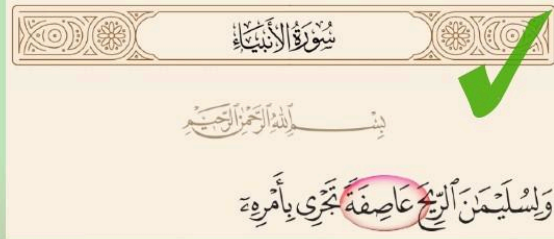 سُورَةُ الأَنبِيَاءِ
بِسْمِ ٱللَّهِ ٱلرَّحْمَٰنِ ٱلرَّحِيمِ
وَلِسُلَيْمَٰنَ ٱلرِّيحَ عَاصِفَةً تَجْرِى بِأَمْرِهِۦٓ